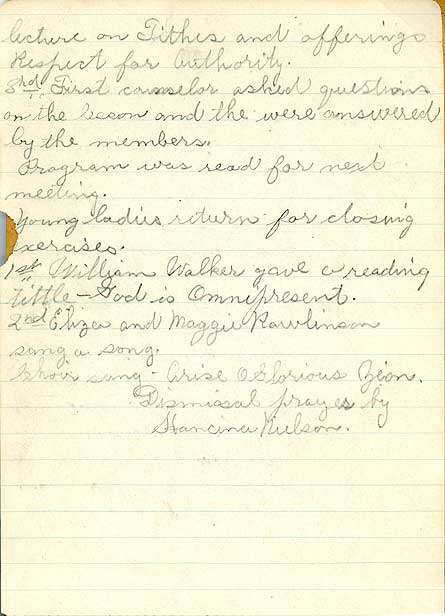 lecture on Tithes and offerings
Respect for Authority.
3rd. First counselor asked questions
on the lesson and the were answered
by the members.
Program was read for next
meeting.
Young ladies return for closing
exercises.
1st William Walker gave a reading
tittle - God is Omnipresent.
2nd Eliza and Maggie Rawlinson
sang a song.
Choir sang - Arise O Glorious Zion.
Dismissal prayer by
Nielson.